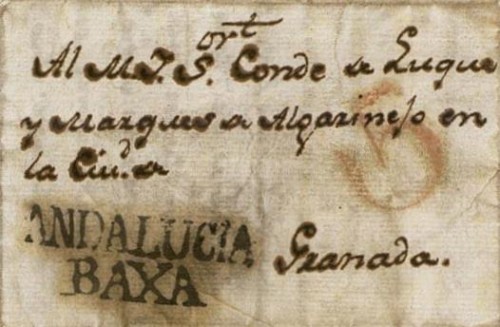 ort
Al M. J. S. Conde a Luque
y Marques a Algarinejo en
la Ciud. a
ANDALUCIA
BAXA
Granada.
5